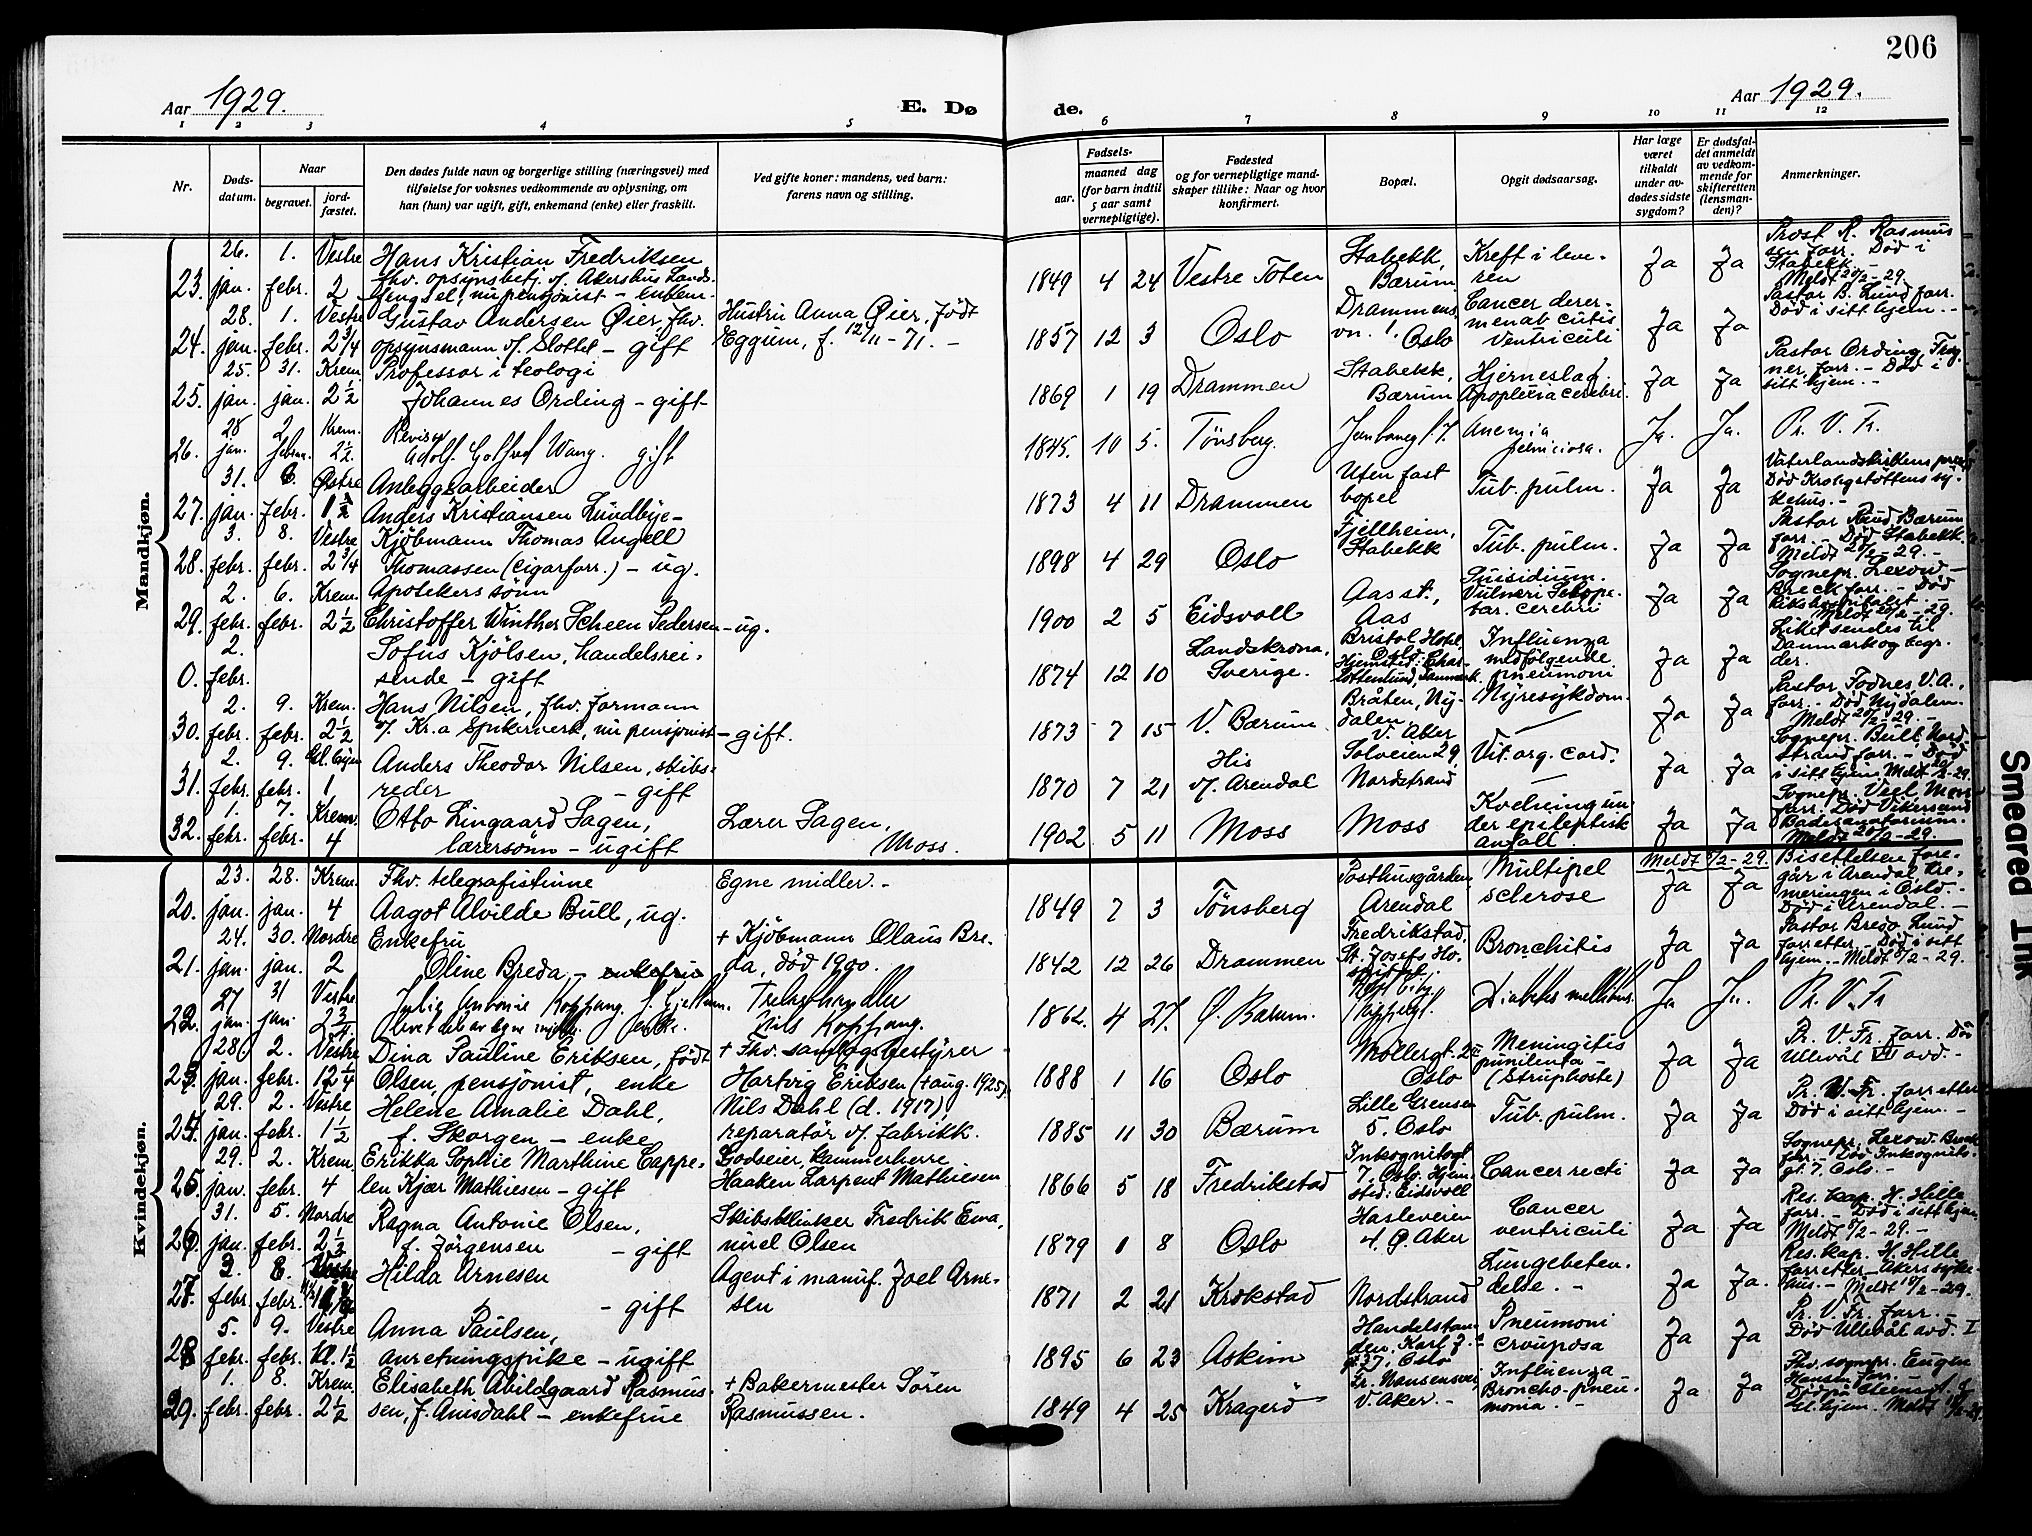 206
Aar 1929.
E. Dø de.
Aar 1929.
1 2 3 4 5 6 7 8 9 10 11 12
Nr.
Døds-
datum.
Naar
begravet.
jord-
fæstet.
Den dødes fulde navn og borgerlige stilling (næringsvei) med
tilføielse for voksnes vedkommende av oplysning, om
han (hun) var ugift, gift, enkemand (enke) eller fraskilt.
Ved gifte koner: mandens, ved barn:
farens navn og stilling.
Fødsels-
aar. maaned dag
(for barn indtil
5 aar samt
vernepligtige).
Fødested
og for vernepligtige mand-
skaper tillike: Naar og hvor
konfirmert.
Bopæl.
Opgit dødsaarsag.
Har læge
været
tilkaldt
under av-
dødes sidste
sygdom?
Er dødsfal-
det anmeldt
av vedkom-
mende for
skifteretten
(lensman-
den)?
Anmerkninger.
Mandkjøn.
23. 26. jan. 1. febr. Vestre 2
Hans Kristian Fredriksen
fhv. opsynsbetj. v/ Akershus Lands-
fengsel, nu pensjonist – enkem.
1849 4 24 Vestre Toten
Stabekk,
Bærum
Kreft i leve-
ren
Ja Ja
Prost R. Rasmus
sen forr. Død i
Stabekk.
Meldt 20/2-29.
24. 28. jan. 1. febr. Vestre 2 3/4
Gustav Andersen Øier, fhv.
opsynsmann v/ Slottet – gift
Hustru Anna Øier, født
Eggum, f. 12/11-71. –
1857 12 3 Oslo
Drammens
vn. 1. Oslo
Cancer
ventriculi
Ja Ja
Pastor B. Lund forr.
Død i sitt hjem. –
25. 25. jan. 31. jan. Krem. 2 1/2
Professor i teologi
Johannes Ording – gift
1869 1 19 Drammen
Stabekk,
Bærum
Hjerneslag
Apoplexia cerebri.
Ja Ja
Pastor Ording, Frog-
ner, forr. – Død i
sitt hjem. –
26. 28 jan. 2 febr. Krem. 2 1/2.
Revisor
Adolf Gotfred Wang. gift
1845. 10 5. Tønsberg.
Anemia
perniciosa.
Ja. Ja. Pr. V. Fr.
27. 31. jan. 6. febr. Østre 1 1/2
Anleggsarbeider
Anders Kristiansen Lundbye –
1873 4 11 Drammen
Uten fast
bopel
Tub. pulm.
Ja Ja
Vaterlandskirkens prest
Død Krohgstøttens sy-
kehus. –
28. 3. febr. 8. febr. Vestre 2 3/4
Kjøbmann Thomas Angell
Thomassen (cigarforr.) – ug.
1898 4 29 Oslo
Fjellheim,
Stabekk
Tub. pulm.
Ja Ja
Pastor Ruud Bærum
forr. – Død Stabekk.
Meldt 20/2-29. –
29. 2. febr. 6. febr. Krem. 2 1/2
Apotekers sønn
Christoffer Winther Scheen Pedersen – ug.
1900 2 5 Eidsvoll
Aas st.,
Aas
Suisidium.
Vulneri Sclope-
tar. cerebri
Ja Ja
Sognepr. Lexow –
Breck forr. – Død
Rikshospitalet. –
Meldt 20/2-29.
0. 2. febr.
Sofus Kjölsen, handelsrei-
sende – gift
1874 12 10
Landskrona,
Sverige.
Bristol Hotel,
Oslo
Hjemsted: Char-
lottenlund, Danmark.
Influenza
medfølgende
pneumoni
Ja Ja
Liket sendes til
Danmark og begr.
der.
30. 2. febr. 9. febr. Krem. 2 1/2
Hans Nilsen, fhv. formann
v/ Kr.a Spikerverk, nu pensjonist – gift.
1873 7 15 V. Bærum
Bråten, Ny-
dalen,
V. Aker
Nyresykdom.
Ja Ja
Pastor Fodnes V.A.,
forr. – Død Nydalen.
Meldt 20/2-29. –
31. 2. febr. 9. febr. 1
Anders Theodor Nilsen, skibs-
reder – gift
1870 7 21
His
v/ Arendal
Solveien 29,
Nordstrand
Vit. org. cord.
Ja Ja
Sognepr. Bull Nord-
strand forr. – Død
i sitt hjem
32. 1. febr. 7. febr. Krem. 4
Otto Lingaard Sagen,
lærersønn – ugift
Lærer Sagen,
Moss.
1902 5 11 Moss
Moss
Kvelning un-
der epileptisk
anfall.
Ja Ja
Sognepr. Viel Moss
forr. Død Vikersund
Badesanatorium.
Meldt 20/2-29.
Kvindekjøn.
20. 23. jan. 28. jan. Krem. 4
Fhv. telegrafistinne
Aagot Alvilde Bull, ug.
Egne midler. –
1849 7 3 Tønsberg
Posthusgården
Arendal
Multipel
sclerose
Ja Ja
Bisettelsen fore-
går i Arendal Kre-
meringen i Oslo. –
Død i Arendal. –
21. 24. jan. 30. jan. Nordre 2
Enkefru
Oline Breda, – enkefrue
+ Kjøbmann Olaus Bre-
da, död 1900.
1842 12 26 Drammen
Fredrikstad,
St. Josefs Ho-
spital.
Bronchitis
Ja Ja
Pastor Bredo Lund
forretter – Død i sitt
hjem. –
22. 27 jan. 31 jan. Vestre 2 3/4.
Julie Antonie Koppang
enke.
Trelasthandler
Nils Koppang.
1862. 4 27. Ø. Bærum.
Diabetes mellitus.
Ja Ja. Pr. V. Fr
23. 28. jan. 2. febr. Vestre 12 1/4
Dina Pauline Eriksen, født
Olsen, pensjonist, enke
+ Fhv. samlagsbestyrer
Hartvig Eriksen (+ aug. 1925).
1888 1 16 Oslo
Møllergt.
Oslo
Meningitis
(Struphoste)
Ja Ja
Pr. V. Fr. forr. Dö
Ullevål VII avd. –
24. 29. jan. 2. febr. Vestre 1 1/2
Helene Amalie Dahl,
f. Skorgen – enke
Nils Dahl (d. 1917),
reparatör v/ fabrikk.
1885 11 30 Bærum
Lille Grensen
5. Oslo
Tub. pulm.
Ja Ja
Pr. V. Fr. forretter
Död i sitt hjem. –
25. 29. jan. 2. febr. Krem. 4
Erikka Sophie Marthine Cappe-
len Kjær Mathiesen – gift
Godseier, kammerherre
Haaken Larpent Mathiesen
1866 5 18 Fredrikstad
Inkognitogt
7, Oslo. Hjem-
sted: Eidsvoll
Cancer recti
Ja Ja
Sognepr. Lexow-Breck
forr. – Død Inkognito-
gt. 7, Oslo. –
26. 31. jan. 5. febr. Nordre 2 1/2
Ragna Antonie Olsen,
f. Jörgensen – gift
Skibsklinker Fredrik Ema-
nuel Olsen
1879 1 8 Oslo
Hasleveien
4. Ø. Aker
Cancer
ventriculi
Ja Ja
Res. kap. H. Hille
forr. – Død i sitt hjem.
27. 3. febr. 8. febr. Vestre
Hilda Arnesen
– gift
Agent i manuf. Joel Arne-
sen
1871 2 21 Krokstad
Nordstrand
Lungebeten-
delse. –
Ja Ja.
Res. kap. H. Hille
forretter – Akers syke-
hus. –
28 5. febr. 9. febr. Vestre Kl. 1 1/2
Anna Paulsen,
anretningspike – ugift
1895 6 23 Askim
Handelsstan-
den. Karl J.
gt 37, Oslo
Pneumoni
crouposa
Ja Ja
Pr. V. Fr. forr. –
Död Ullevål avd. I
29. 1. febr. 8. febr. Krem. 2 1/2
Elisabeth Abildgaard Rasmus-
sen, f. Amsdahl – enkefrue
+ Bakermester Sören
Rasmussen.
1849 4 25 Kragerö
Fr. Nansensvei
V. Aker. –
Influenza
Broncho-pneu-
monia. –
Ja Ja
Fhv. sognepr. Eugen
Hansen forr. –
Smeared Ink